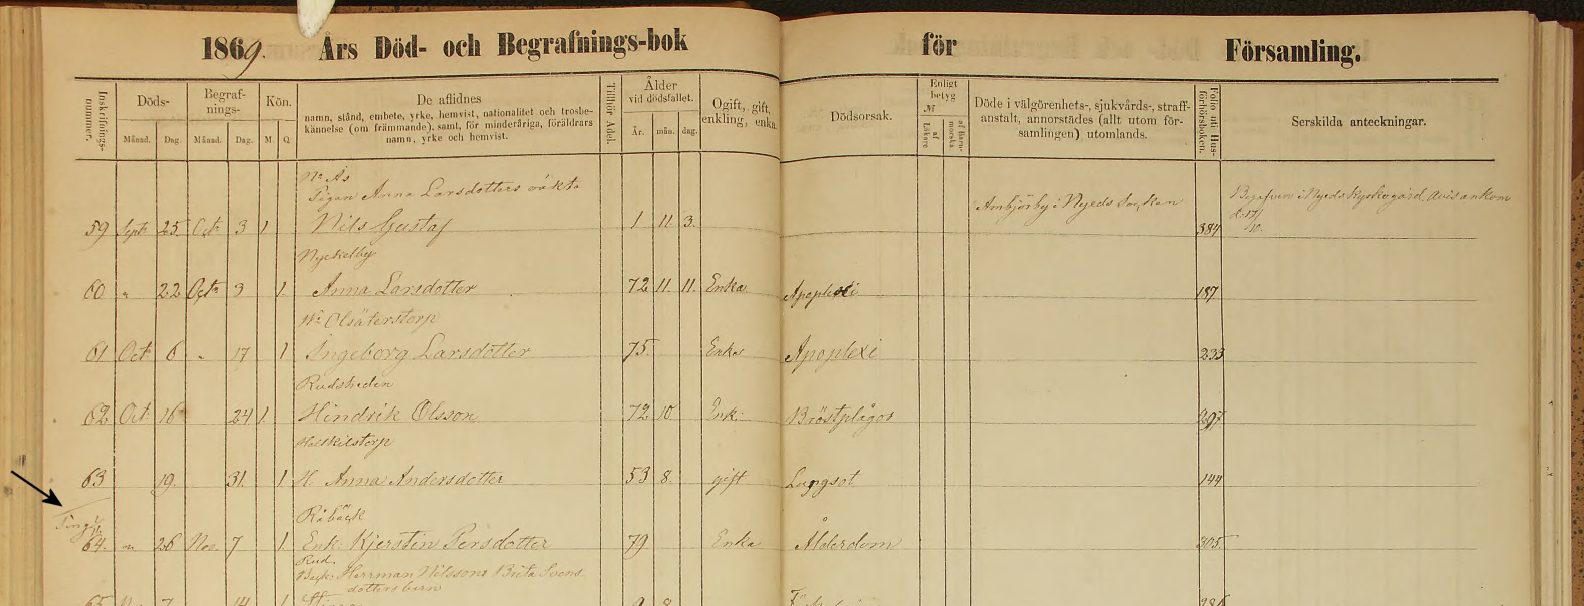 1869. Års Död- och Begrafnings-bok för Församling.
Inskrifnings-nummer.
Döds-
Månad. Dag.
Begraf-
nings-
Månad. Dag.
Kön.
M. Q.
De aflidnes
namn, stånd, embete, yrke, hemvist, nationalitet och trosbe-
kännelse (om främmande), samt, för minderåriga, föräldrars
namn, yrke och hemvist.
Tillhör Adel.
Ålder
vid dödsfallet.
År. mån. dag.
Ogift, gift,
enkling, enka.
Dödsorsak.
Enligt
betyg
№
af Läkare
af Barn-
morska
Död i välgörenhets-, sjukvårds-, straff-
anstalt, annorstädes (allt utom för-
samlingen) utomlands.
Folio uti Hus-
förhörsboken.
Serskilda anteckningar.
Nº Ås
Pigan Anna Larsdotters oäkta
59 Sept 25 Oct 3 1 Nils Gustaf 1 11 3. Ambjörby i Nyeds Socken 384 i Nyeds Kyrkogård, avis ankom
Nyckelby
60 " 22 Oct 3 1. Anna Larsdotter 72 11. 11. Enka Apoplexi 187
Nº Olsäterstorp
61 Oct 6 " 17 1 Ingeborg Larsdotter 75. Enka Apoplexi 233
Rudsheden
62 Oct 16 24 1. Hindrik Olsson 72 10 Enk: Bröstplågor 297
63 19. 31. 1 H. Anna Andersdotter 53 8. gift Lungsot 144
Råbäck
64. " 26 Nov. 7 1. Enk. Kjerstin Persdotter 79 Enka Ålderdom 305
Rud.
Herrman Nilssons Brita Svens
dotters barn
65 7 14 1